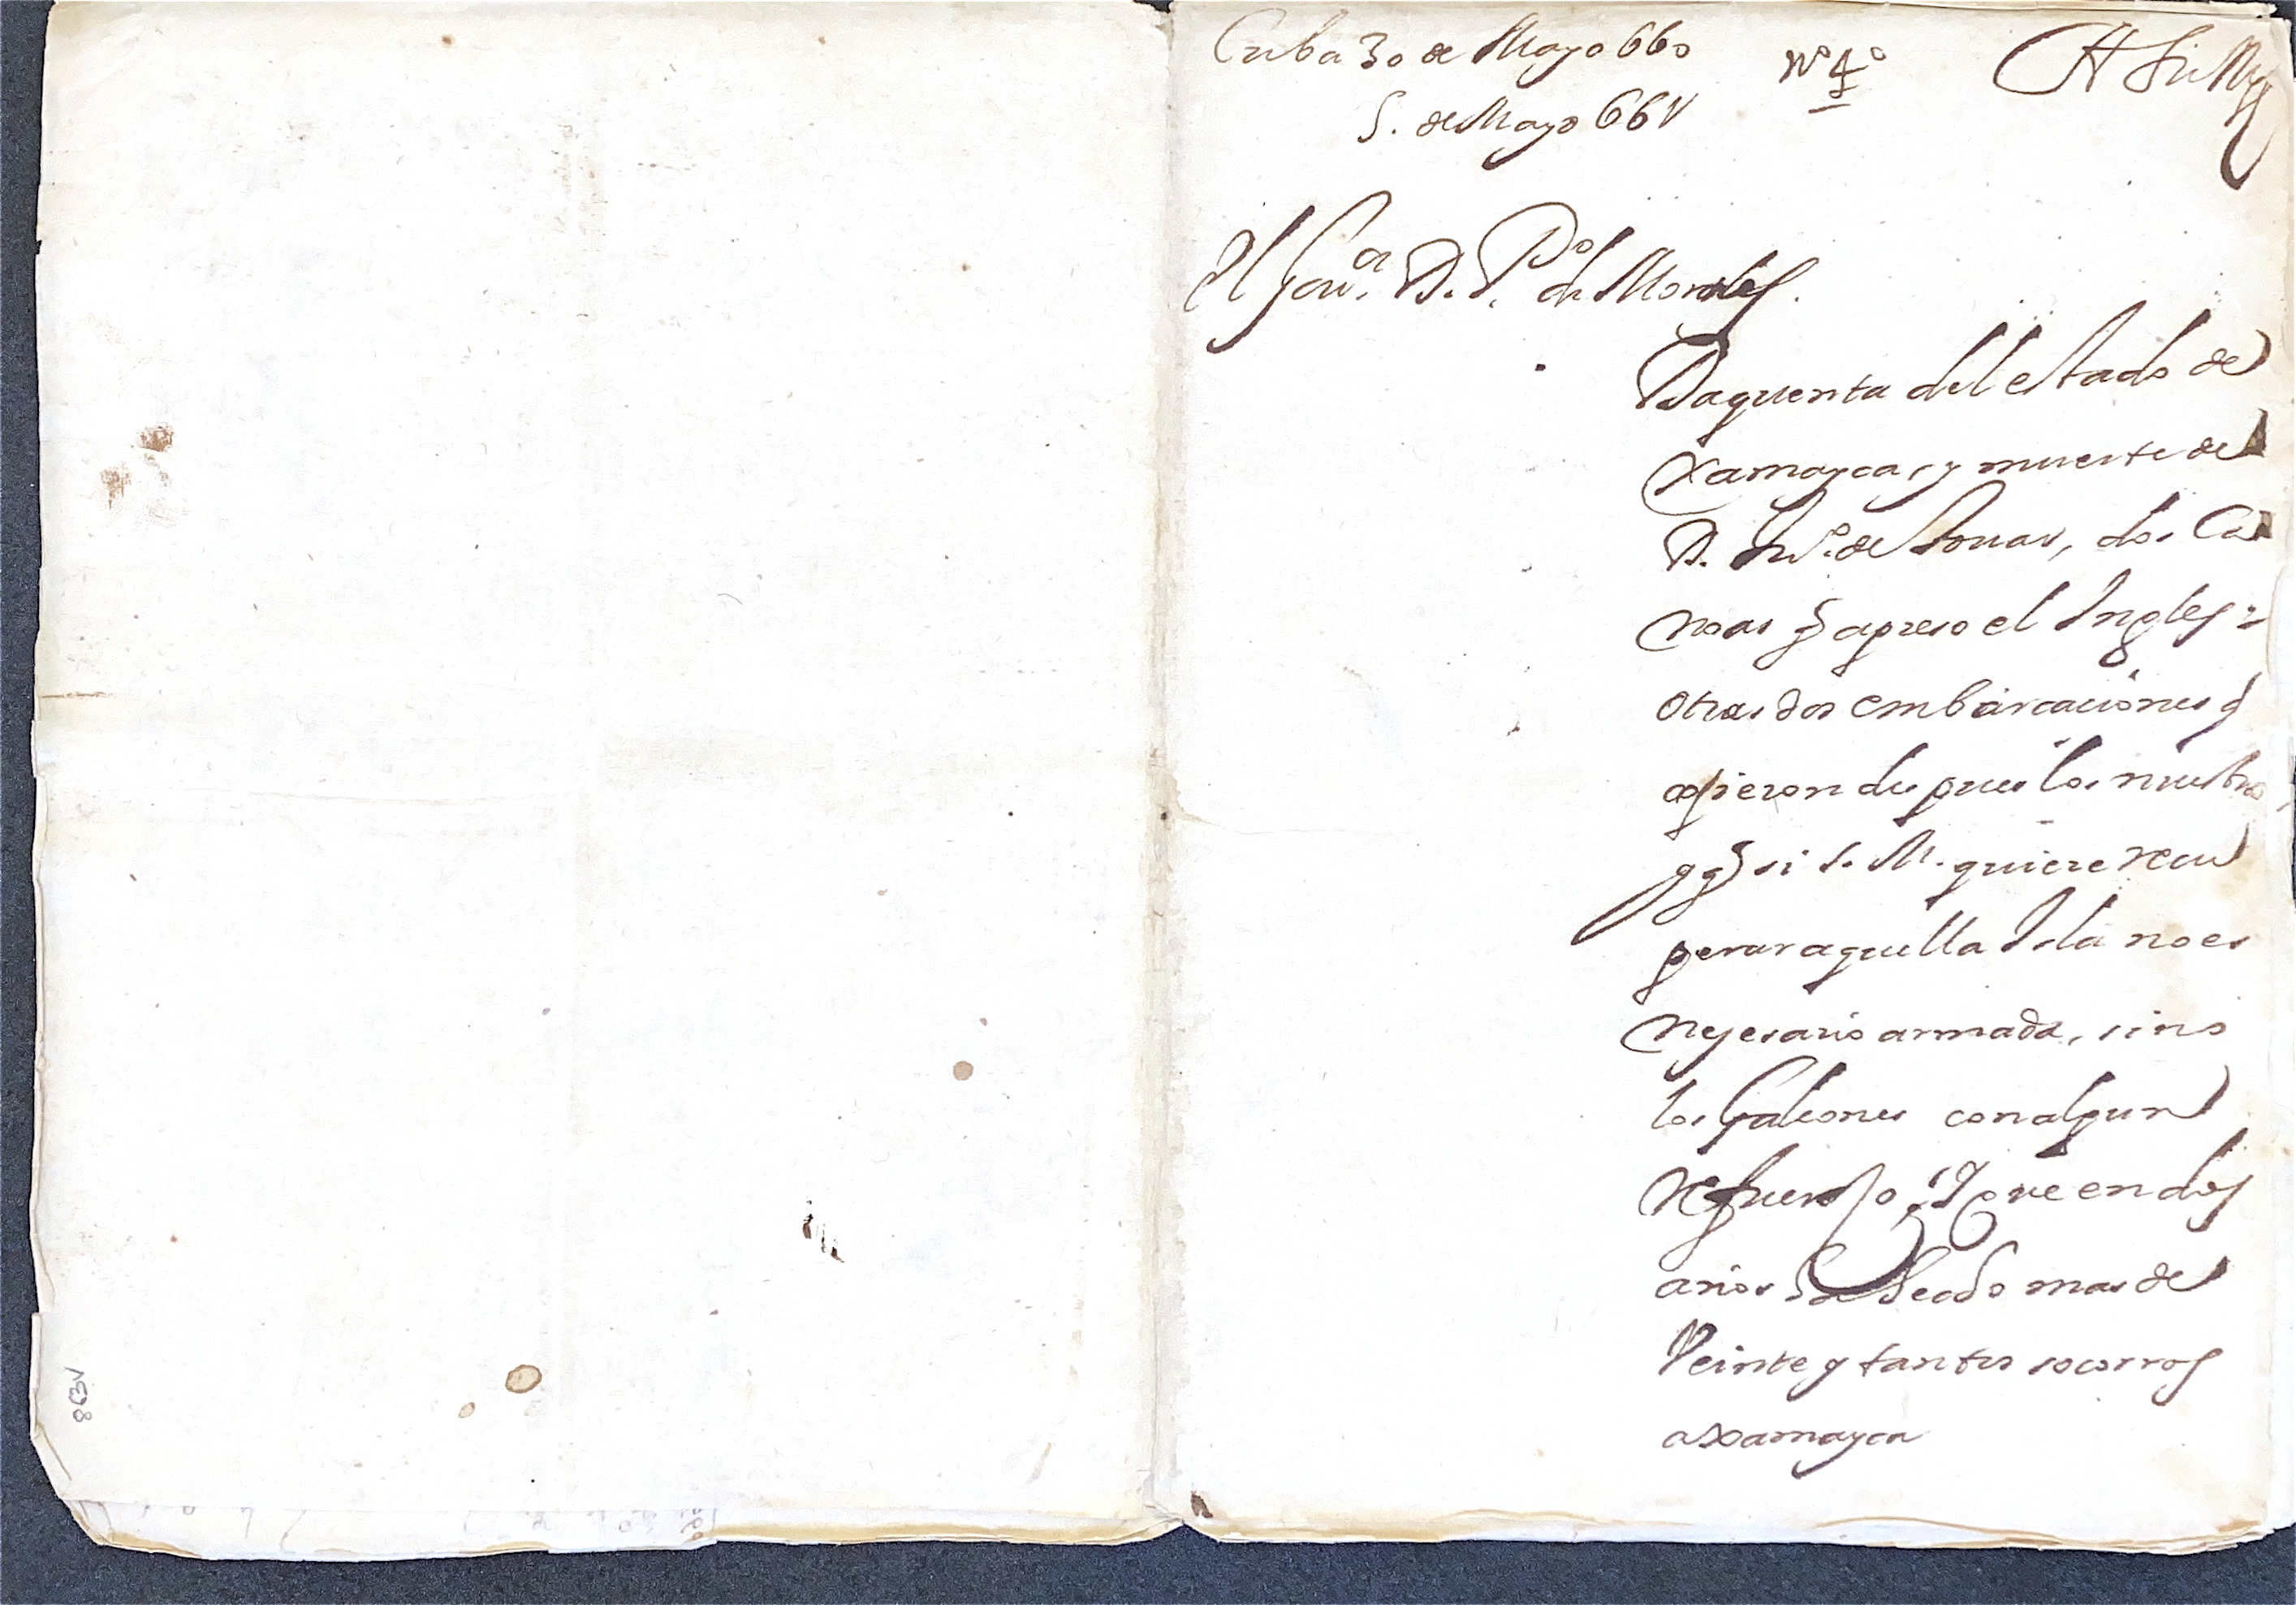 Cuba 30 de Mayo 660
5. de Mayo 661
Nº 4º
A Su Mgd
El Gov.or D. P.o de Morales.
Da quenta del estado de
Xamayca, y muerte de
D. Xpl. de Ysassi, dos Ca
noas q apreso el Ingles y
otras dos embarcaciones q
cojieron despues los nuestros
y q si S. M. quiere recu
perar aquella Isla no es
nesesario armada, sino
los Galeones con algun
refuerso, y que en dos
años ha hechado mas de
Veinte y tantos socorros
a Xamayca